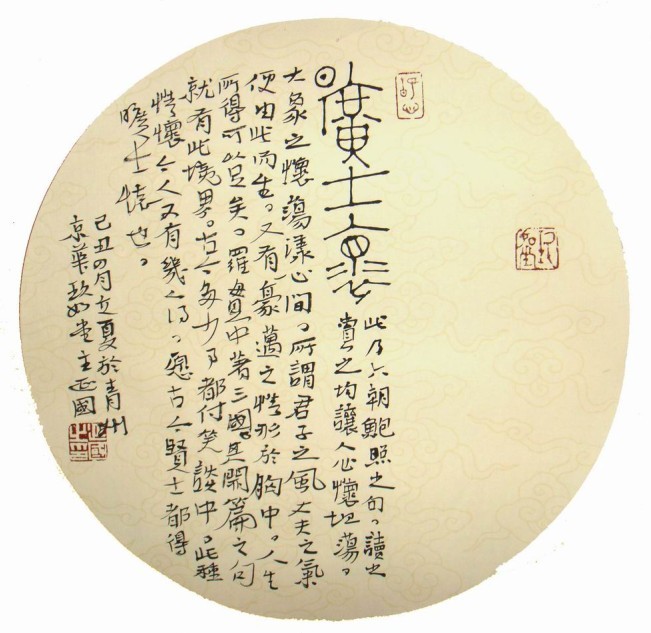 曠士懷
此乃六朝鮑照之句。讀之
賞之均讓人心懷坦蕩。
大象之懷蕩漾心間。所謂君子之風丈夫之氣
便由此而生。又有豪邁之性形於胸中。人生
所得可苴矣。羅貫中著三國其開篇之句
就有此境界。古今多少事都付笑談中。此種
情懷今人又有幾人得。愿古今賢士都得
曠士懷也。
己丑四月立夏於青州
京華 堂主正國